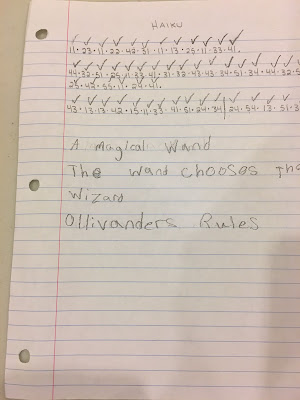 HAIKU
11·23·11·22·42·31·11·13·25·11·33·41.
44·32·51·25·11·33·41·31·32·43·43·34·51·34·44·32·5
25·42·55·11·24·41.
43·13·13·42·15·11·33·41·51·24·34|24·54·13·51·3
A magical Wand
The wand chooses The
Wizard
Ollivanders Rules